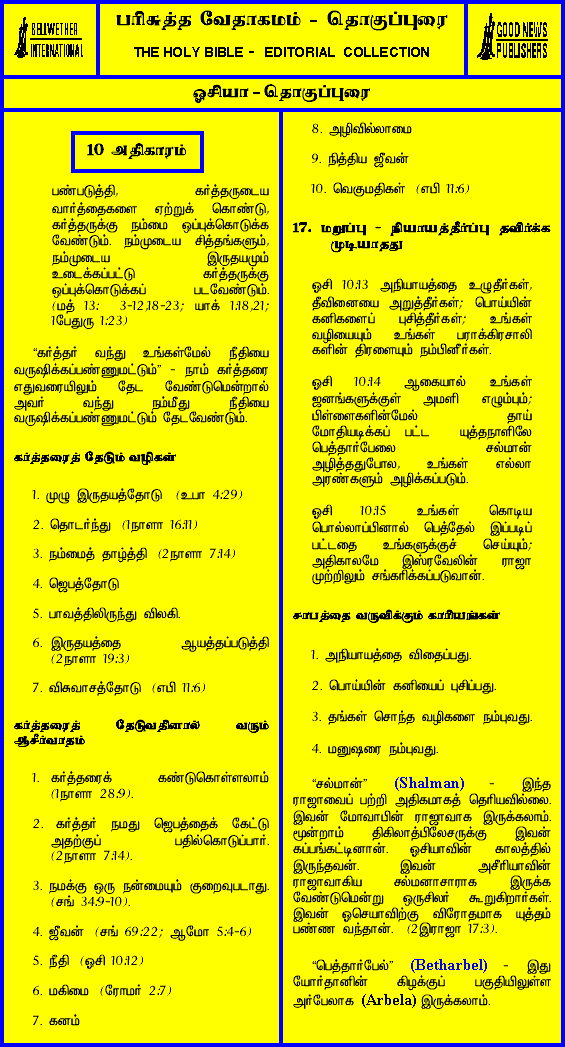 BELLWETHER
INTERNATIONAL
பரிசுத்த வேதாகமம் - தொகுப்புரை
THE HOLY BIBLE - EDITORIAL COLLECTION
GOOD NEWS
PUBLISHERS
ஓசியா - தொகுப்புரை
10 அதிகாரம்
பண்படுத்தி, கர்த்தருடைய
வார்த்தைகளை ஏற்றுக் கொண்டு,
கர்த்தருக்கு நம்மை ஒப்புக்கொடுக்க
வேண்டும். நம்முடைய சித்தங்களும்,
நம்முடைய இருதயமும்
உடைக்கப்பட்டு கர்த்தருக்கு
ஒப்புக்கொடுக்கப் படவேண்டும்.
(மத் 13: 3-12,18-23; யாக் 1:18,21;
1பேதுரு 1:23)
“கர்த்தர் வந்து உங்கள்மேல் நீதியை
வருஷிக்கப்பண்ணுமட்டும்” - நாம் கர்த்தரை
எதுவரையிலும் தேட வேண்டுமென்றால்
அவர் வந்து நம்மீது நீதியை
வருஷிக்கப்பண்ணுமட்டும் தேடவேண்டும்.
கர்த்தரைத் தேடும் வழிகள்
1. முழு இருதயத்தோடு (உபா 4:29)
2. தொடர்ந்து (1நாளா 16:11)
3. நம்மைத் தாழ்த்தி (2நாளா 7:14)
4. ஜெபத்தோடு
5. பாவத்திலிருந்து விலகி.
6. இருதயத்தை ஆயத்தப்படுத்தி
(2நாளா 19:3)
7. விசுவாசத்தோடு (எபி 11:6)
கர்த்தரைத் தேடுவதினால் வரும்
ஆசீர்வாதம்
1. கர்த்தரைக் கண்டுகொள்ளலாம்
(1நாளா 28:9).
2. கர்த்தர் நமது ஜெபத்தைக் கேட்டு
அதற்குப் பதில்கொடுப்பார்.
(2நாளா 7:14).
3. நமக்கு ஒரு நன்மையும் குறைவுபடாது.
(சங் 34:9-10).
4. ஜீவன் (சங் 69:22; ஆமோ 5:4-6)
5. நீதி (ஓசி 10:12)
6. மகிமை (ரோமர் 2:7)
7. கனம்
8. அழிவில்லாமை
9. நித்திய ஜீவன்
10. வெகுமதிகள் (எபி 11:6)
17. மறுப்பு - நியாயத்தீர்ப்பு தவிர்க்க
முடியாதது
ஓசி 10:13 அநியாயத்தை உழுதீர்கள்,
தீவினையை அறுத்தீர்கள்; பொய்யின்
கனிகளைப் புசித்தீர்கள்; உங்கள்
வழியையும் உங்கள் பராக்கிரசாலி
களின் திரளையும் நம்பினீர்கள்.
ஓசி 10:14 ஆகையால் உங்கள்
ஜனங்களுக்குள் அமளி எழும்பும்;
பிள்ளைகளின்மேல் தாய்
மோதியடிக்கப் பட்ட யுத்தநாளிலே
பெத்தார்பேலை சல்மான்
அழித்ததுபோல, உங்கள் எல்லா
அரண்களும் அழிக்கப்படும்.
ஓசி 10:15 உங்கள் கொடிய
பொல்லாப்பினால் பெத்தேல் இப்படிப்
பட்டதை உங்களுக்குச் செய்யும்;
அதிகாலமே இஸ்ரவேலின் ராஜா
முற்றிலும் சங்கரிக்கப்படுவான்.
சாபத்தை வருவிக்கும் காரியங்கள்
1. அநியாயத்தை விதைப்பது.
2. பொய்யின் கனியைப் புசிப்பது.
3. தங்கள் சொந்த வழிகளை நம்புவது.
4. மனுஷரை நம்புவது.
“சல்மான்” (Shalman) - இந்த
ராஜாவைப் பற்றி அதிகமாகத் தெரியவில்லை.
இவன் மோவாபின் ராஜாவாக இருக்கலாம்.
மூன்றாம் திகிலாத்பிலேசருக்கு இவன்
கப்பங்கட்டினான். ஓசியாவின் காலத்தில்
இருந்தவன். இவன் அசீரியாவின்
ராஜாவாகிய சல்மனாசாராக இருக்க
வேண்டுமென்று ஒருசிலர் கூறுகிறார்கள்.
இவன் ஓசெயாவிற்கு விரோதமாக யுத்தம்
பண்ண வந்தான். (2இராஜா 17:3).
“பெத்தார்பேல்” (Betharbel) - இது
யோர்தானின் கிழக்குப் பகுதியிலுள்ள
அர்பேலாக (Arbela) இருக்கலாம்.